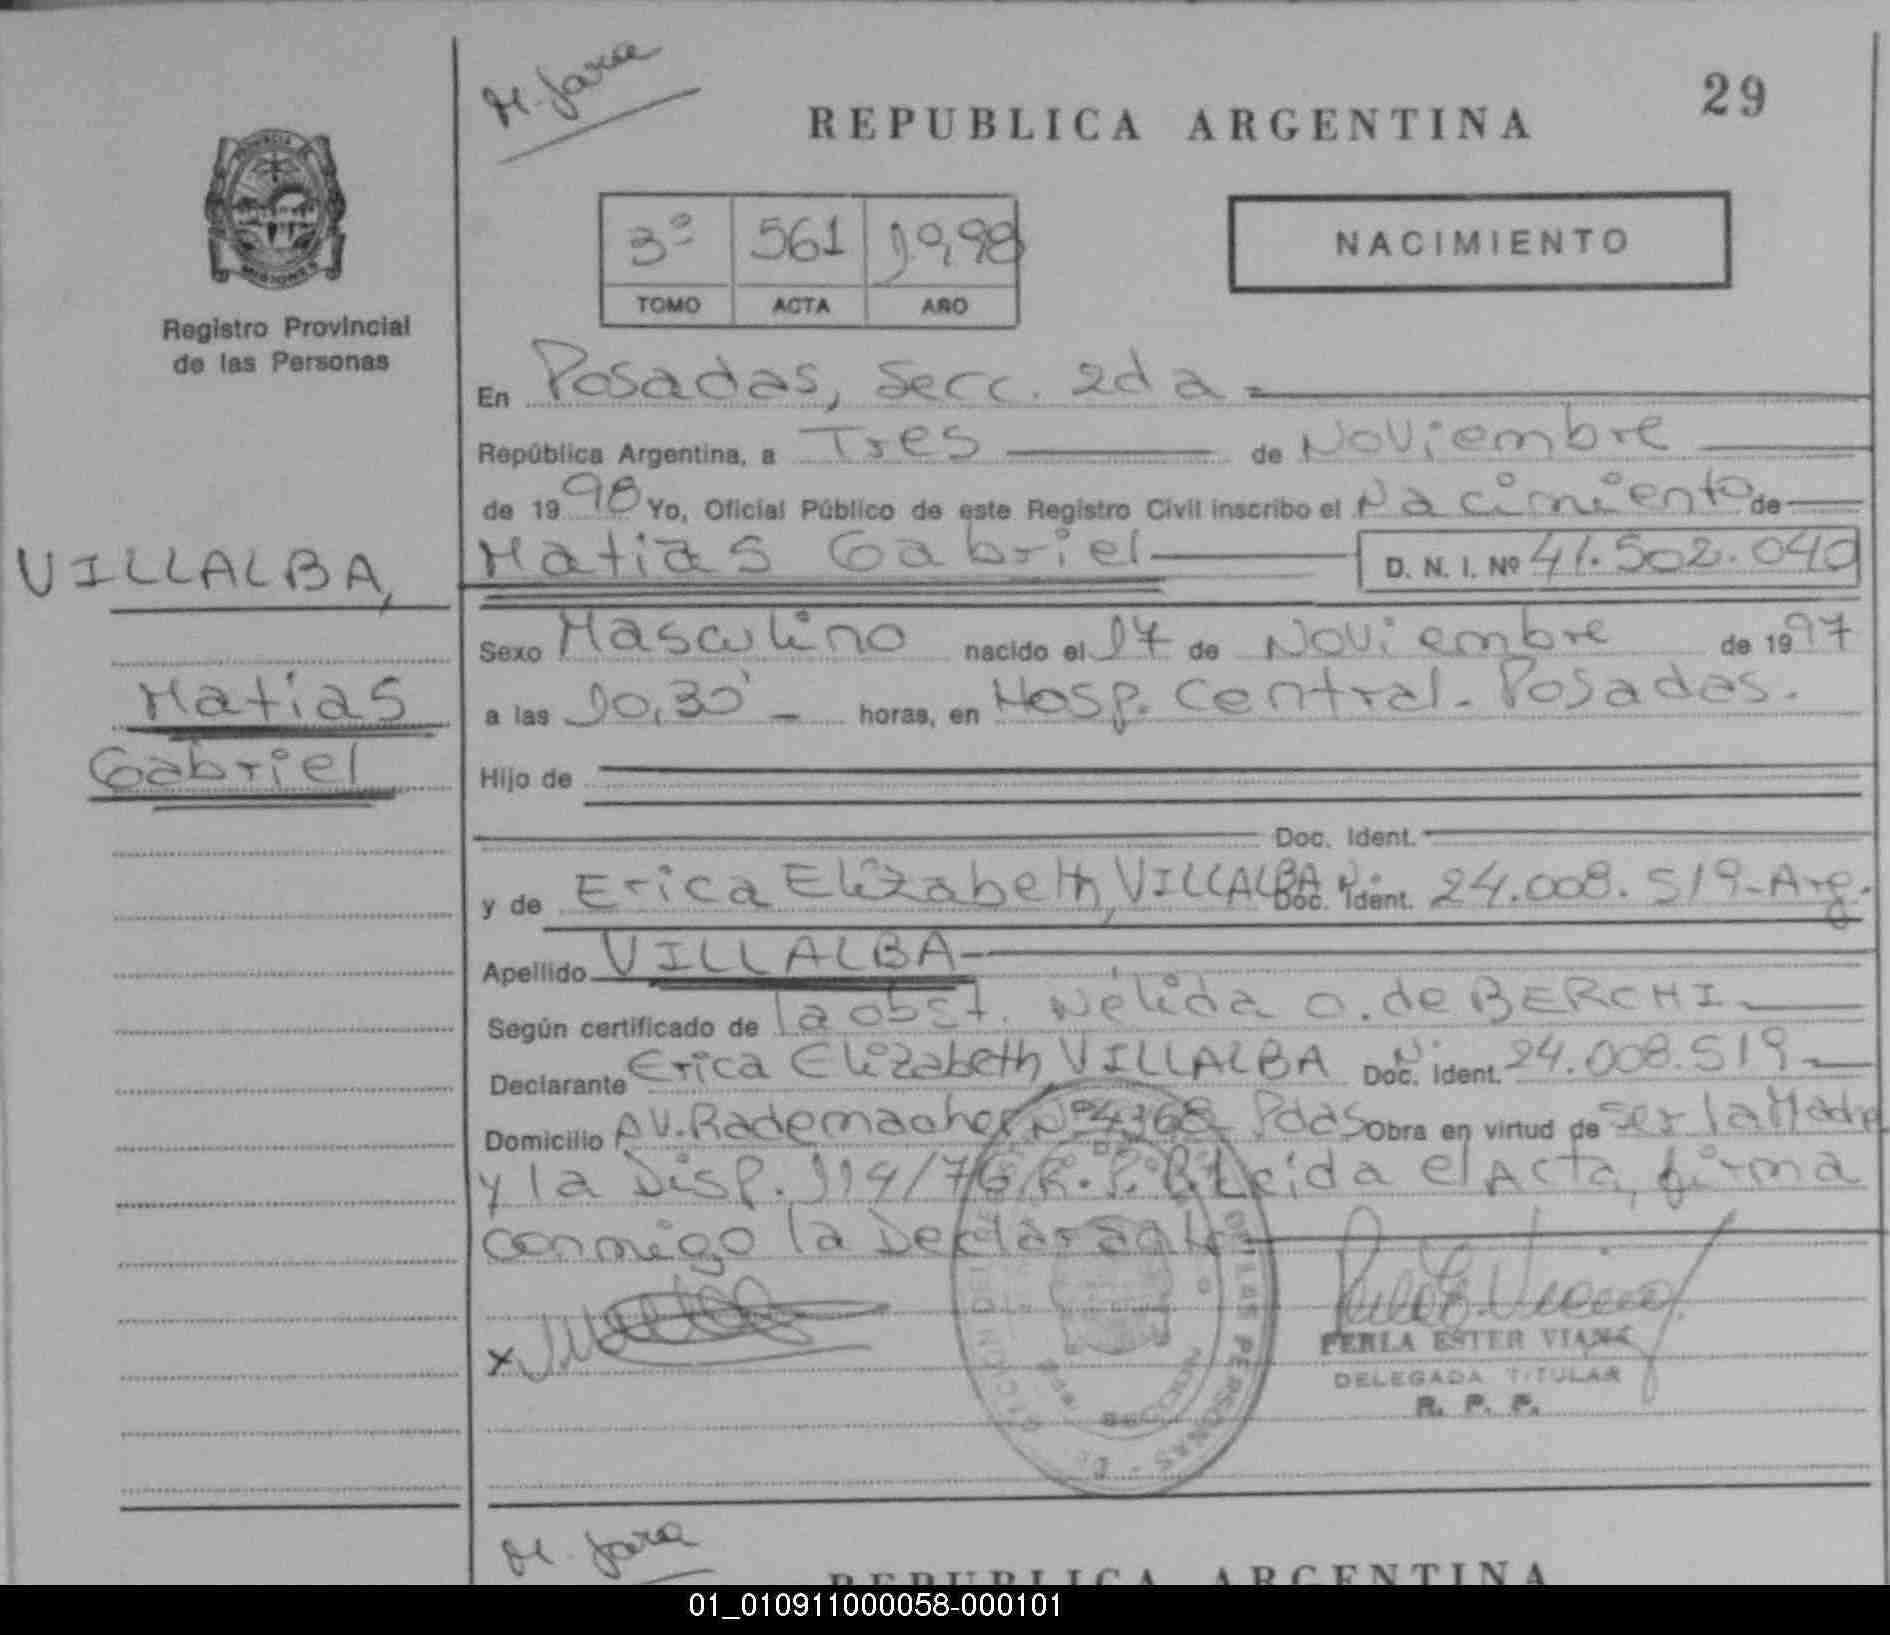 M. Jara
29
REPUBLICA ARGENTINA
PROVINCIA
MISIONES
Registro Provincial
de las Personas
3º 561 1998
TOMO ACTA AÑO
NACIMIENTO
En Posadas, Secc. 2da
República Argentina, a Tres de Noviembre
de 1998 Yo, Oficial Público de este Registro Civil inscribo el Nacimiento de
VILLALBA,
Matias Gabriel D. N. I. Nº 41.502.040
Sexo Masculino nacido el 17 de Noviembre de 1997
Matias
a las 10,30' horas, en Hosp. Central - Posadas.
Gabriel
Hijo de
Doc. Ident.
y de Erica Elizabeth, VILLALBA Doc. Ident. Nº 24.008.519-Arg.
Apellido VILLALBA
Según certificado de la obst. Nélida O. de BERCHI
Declarante Erica Elizabeth VILLALBA Doc. Ident. Nº 24.008.519
Domicilio AV. Rademacher Nº 4768 Pdas Obra en virtud de ser la Madre
y la Disp. 114/76 R.P.P. Leida el Acta, firma
conmigo la Declarante
DE LAS PERSONAS
PERLA ESTER VIANA
DELEGADA TITULAR
R. P. P.
M. Jara
REPUBLICA ARGENTINA
01_010911000058-000101